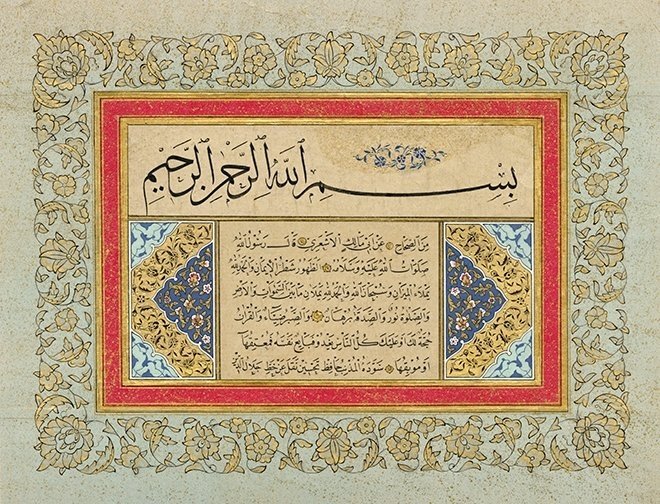 بِسْمِ اللهِ الرَّحْمٰنِ الرَّحِيمِ
مِنَ الصِّحَاحِ عَنْ اَبِي مَالِكٍ الْاَشْعَرِي قَالَ رَسُولُ اللهِ
صَلَوَاتُ اللهِ عَلَيْهِ وَسَلَامُهُ الطُّهُورُ شَطْرُ الْاِيمَانِ وَالْحَمْدُ لِلّٰهِ
تَمْلَاءُ الْمِيزَانَ وَسُبْحَانَ اللهِ وَالْحَمْدُ لِلّٰهِ تَمْلَاٰنِ مَا بَيْنَ السَّمٰوَاتِ وَالْاَرْضِ
وَالصَّلٰوةُ نُورٌ وَالصَّدَقَةُ بُرْهَانٌ وَالصَّبْرُ ضِيَاءٌ وَالْقُرْاٰنُ
حُجَّةٌ لَكَ اَوْ عَلَيْكَ كُلُّ النَّاسِ يَغْدُو فَبَايِعٌ نَفْسَهُ فَمُعْتِقُهَا
اَوْ مُوبِقُهَا سَوَّدَهُ الْمُذْنِبُ حَافِظ تَحْسِين نَقْلَ عَنْ خَطِّ